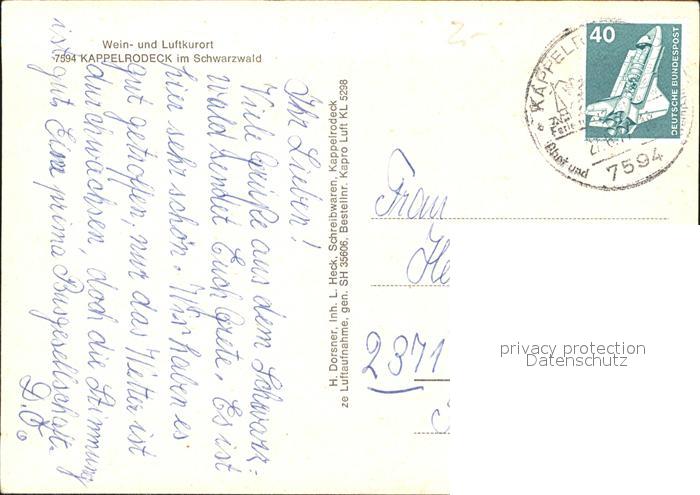 Wein- und Luftkurort
7594 KAPPELRODECK im Schwarzwald
Ihr Lieben!
Viele Grüße aus dem Schwarz-
wald sendet Euch Grete. Es ist
hier sehr schön. Wir haben es
gut getroffen, nur das Wetter ist
durchwachsen, doch die Stimmung
ist gut. Eine prima Busgesellschaft.
D.O.
H. Dorsner, Inh. L. Heck, Schreibwaren, Kappelrodeck
ze Luftaufnahme, gen. SH 35606, Bestellnr. Kapro Luft KL 5298
KAPPELR
7594
40
DEUTSCHE BUNDESPOST
Frau
He
2371
privacy protection
Datenschutz